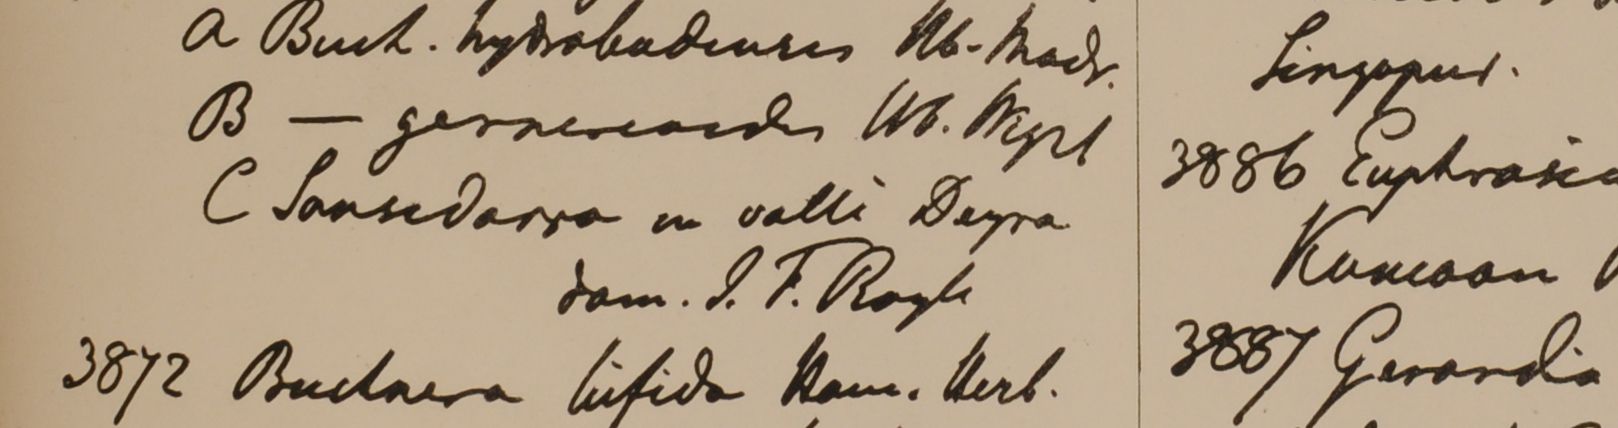 A Buch. hydrabadensis Hb. Madr.
B — gesnerioides Hb. Wight
C Sansedarra in valli Deyra
dom. J. F. Royle
3872 Buchnera bifida Ham. Herb.
Singapur.
3886 Euphrasia
Kumaon
3887 Gerardia